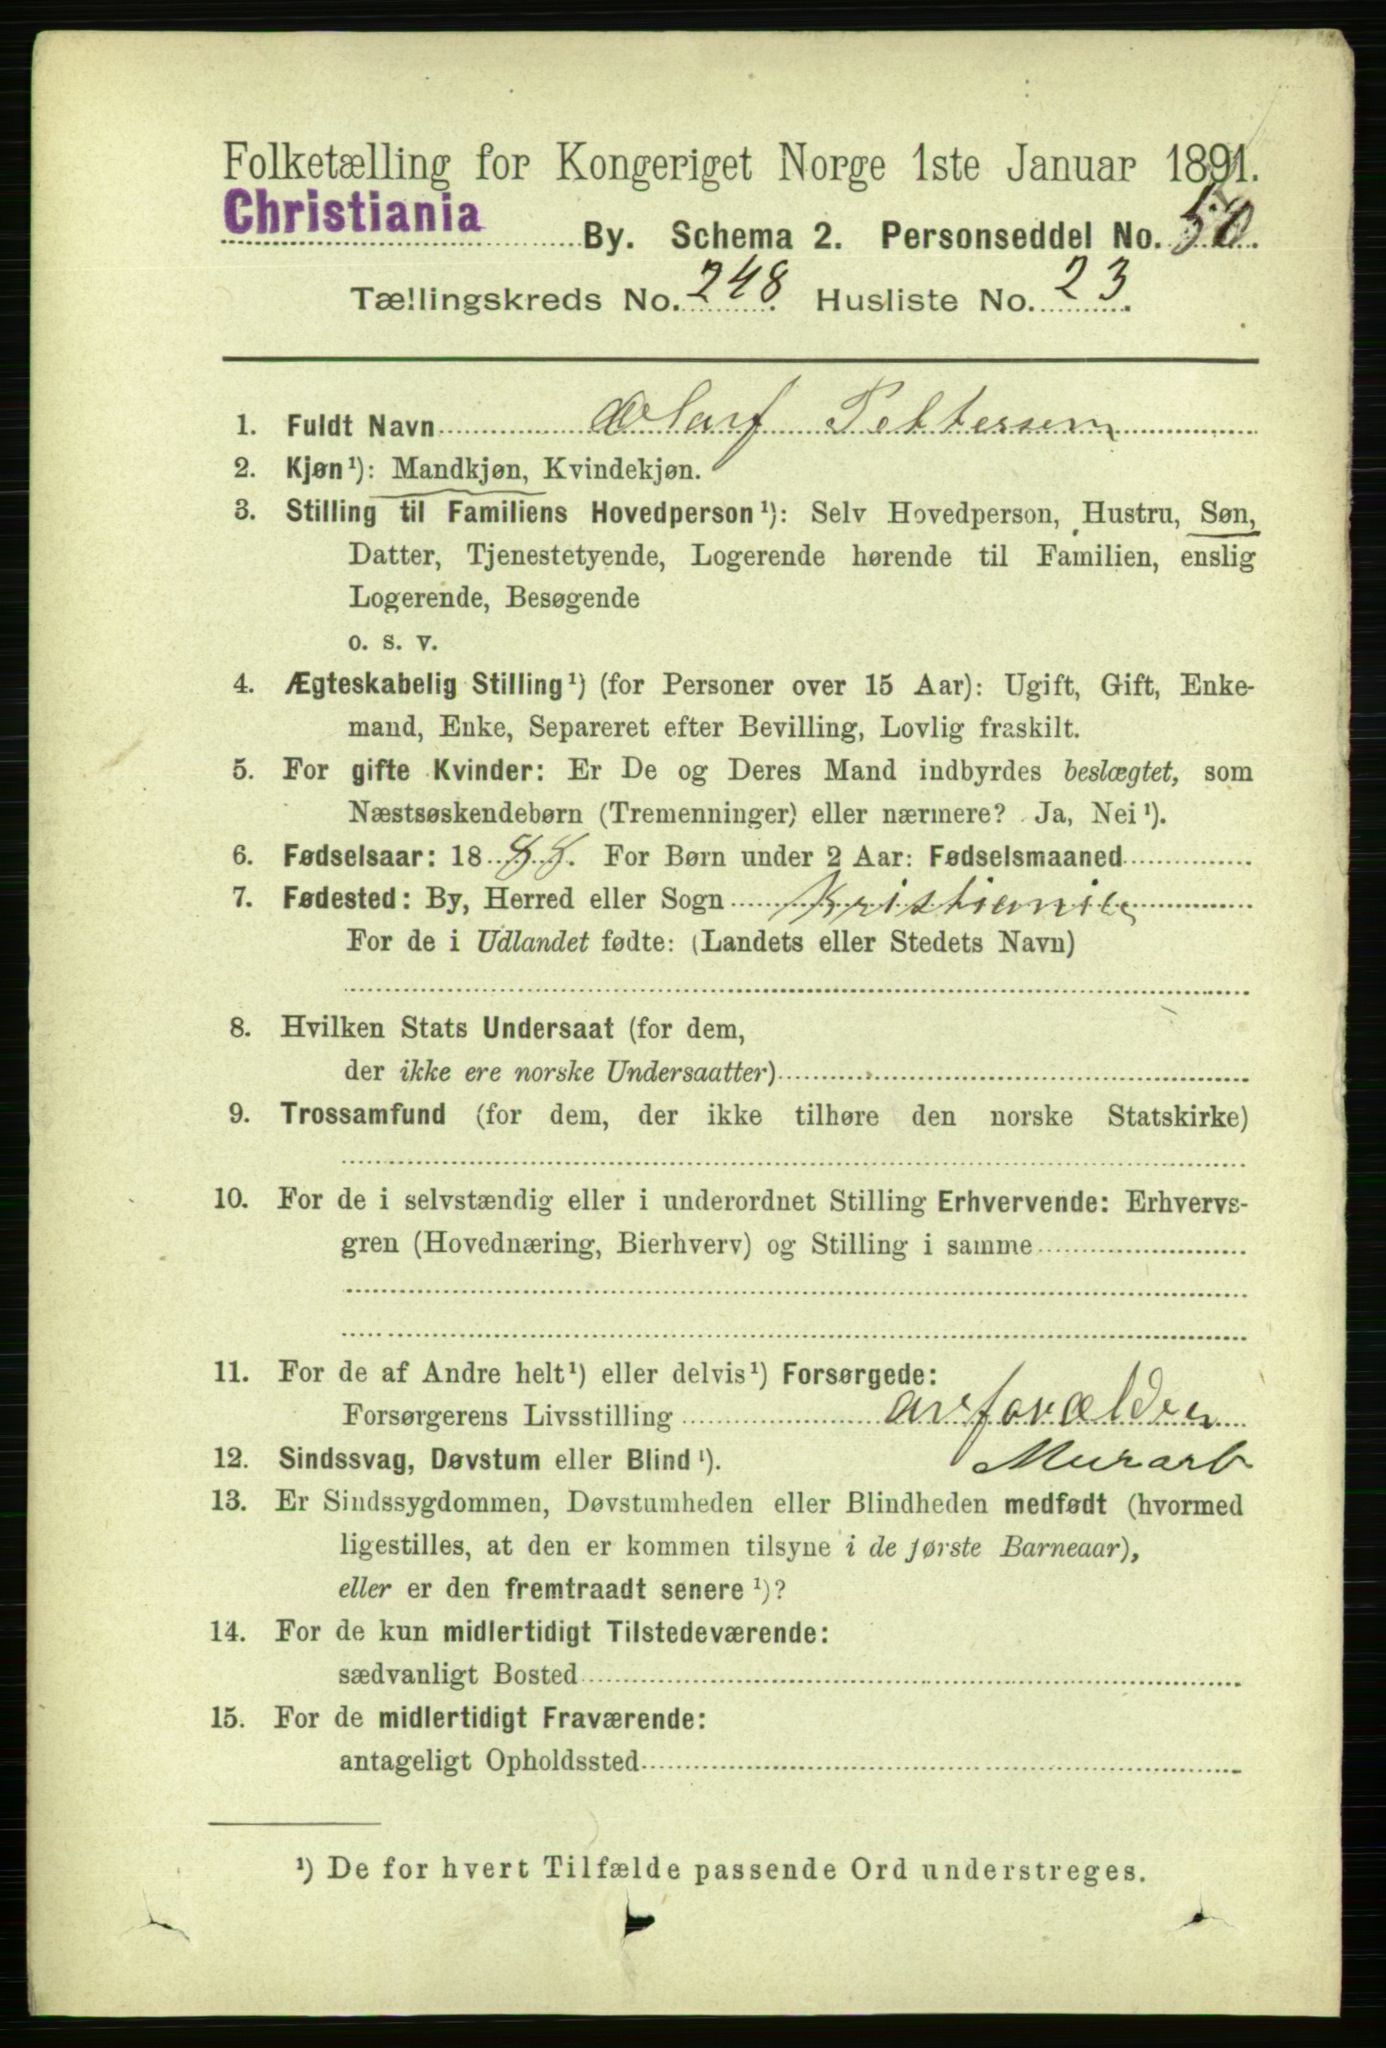 Folketælling for Kongeriget Norge 1ste Januar 1891.
Christiania By. Schema 2. Personseddel No. 50.
Tællingskreds No. 248. Husliste No. 23.
1. Fuldt Navn Olarf Pettersen
2. Kjøn¹): Mandkjøn, Kvindekjøn.
3. Stilling til Familiens Hovedperson¹): Selv Hovedperson, Hustru, Søn,
Datter, Tjenestetyende, Logerende hørende til Familien, enslig
Logerende, Besøgende
o. s. v.
4. Ægteskabelig Stilling¹) (for Personer over 15 Aar): Ugift, Gift, Enke-
mand, Enke, Separeret efter Bevilling, Lovlig fraskilt.
5. For gifte Kvinder: Er De og Deres Mand indbyrdes beslægtet, som
Næstsøskendebørn (Tremenninger) eller nærmere? Ja, Nei¹).
6. Fødselsaar: 1888. For Børn under 2 Aar: Fødselsmaaned
7. Fødested: By, Herred eller Sogn Kristiania
For de i Udlandet fødte: (Landets eller Stedets Navn)
8. Hvilken Stats Undersaat (for dem,
der ikke ere norske Undersaatter)
9. Trossamfund (for dem, der ikke tilhøre den norske Statskirke)
10. For de i selvstændig eller i underordnet Stilling Erhvervende: Erhvervs-
gren (Hovednæring, Bierhverv) og Stilling i samme
11. For de af Andre helt¹) eller delvis¹) Forsørgede:
Forsørgerens Livsstilling av forældren
12. Sindssvag, Døvstum eller Blind¹). Murarb
13. Er Sindssygdommen, Døvstumheden eller Blindheden medfødt (hvormed
ligestilles, at den er kommen tilsyne i de første Barneaar),
eller er den fremtraadt senere¹)?
14. For de kun midlertidigt Tilstedeværende:
sædvanligt Bosted
15. For de midlertidigt Fraværende:
antageligt Opholdssted
¹) De for hvert Tilfælde passende Ord understreges.